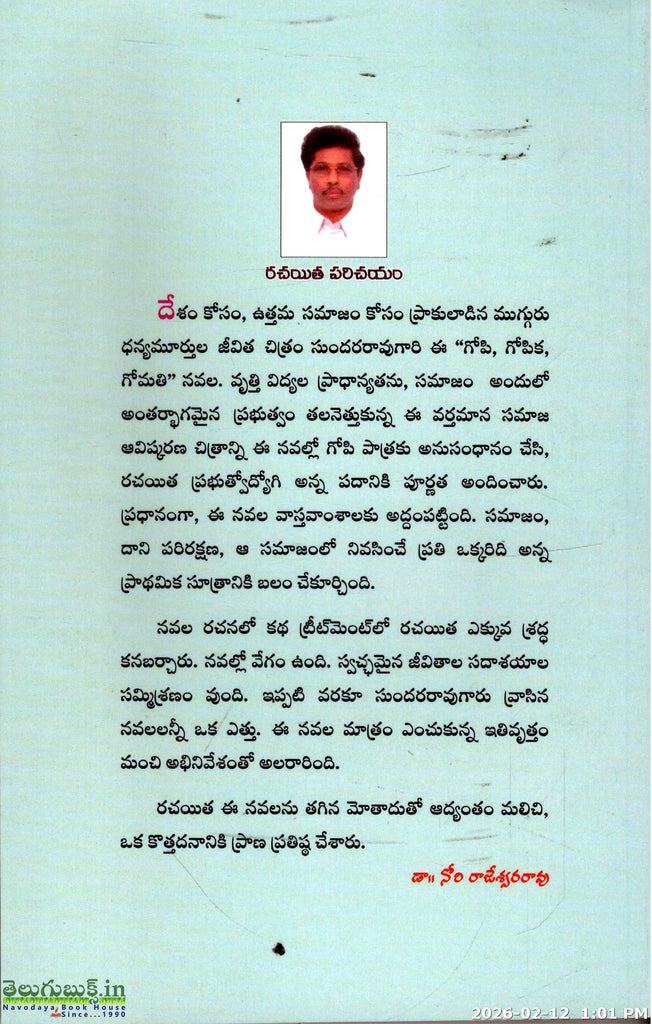 రచయిత పరిచయం
దేశం కోసం, ఉత్తమ సమాజం కోసం ప్రాకులాడిన ముగ్గురు
ధన్యమూర్తుల జీవిత చిత్రం సుందరరావుగారి ఈ “గోపి, గోపిక,
గోమతి” నవల. వృత్తి విద్యల ప్రాధాన్యతను, సమాజం అందులో
అంతర్భాగమైన ప్రభుత్వం తలనెత్తుకున్న ఈ వర్తమాన సమాజ
ఆవిష్కరణ చిత్రాన్ని ఈ నవల్లో గోపి పాత్రకు అనుసంధానం చేసి,
రచయిత ప్రభుత్వోద్యోగి అన్న పదానికి పూర్ణత అందించారు.
ప్రధానంగా, ఈ నవల వాస్తవాంశాలకు అద్దంపట్టింది. సమాజం,
దాని పరిరక్షణ, ఆ సమాజంలో నివసించే ప్రతి ఒక్కరిది అన్న
ప్రాథమిక సూత్రానికి బలం చేకూర్చింది.
నవల రచనలో కథ ట్రీట్‌మెంట్‌లో రచయిత ఎక్కువ శ్రద్ధ
కనబర్చారు. నవల్లో వేగం ఉంది. స్వచ్ఛమైన జీవితాల సదాశయాల
సమ్మిశ్రణం వుంది. ఇప్పటి వరకూ సుందరరావుగారు వ్రాసిన
నవలలన్నీ ఒక ఎత్తు. ఈ నవల మాత్రం ఎంచుకున్న ఇతివృత్తం
మంచి అభినివేశంతో అలరారింది.
రచయిత ఈ నవలను తగిన మోతాదుతో ఆద్యంతం మలిచి,
ఒక కొత్తదనానికి ప్రాణ ప్రతిష్ఠ చేశారు.
డా॥ నోరి రాజేశ్వరరావు
తెలుగుబుక్స్.in
Navodaya Book House
Since...1990
2026-02-12 1:01 PM